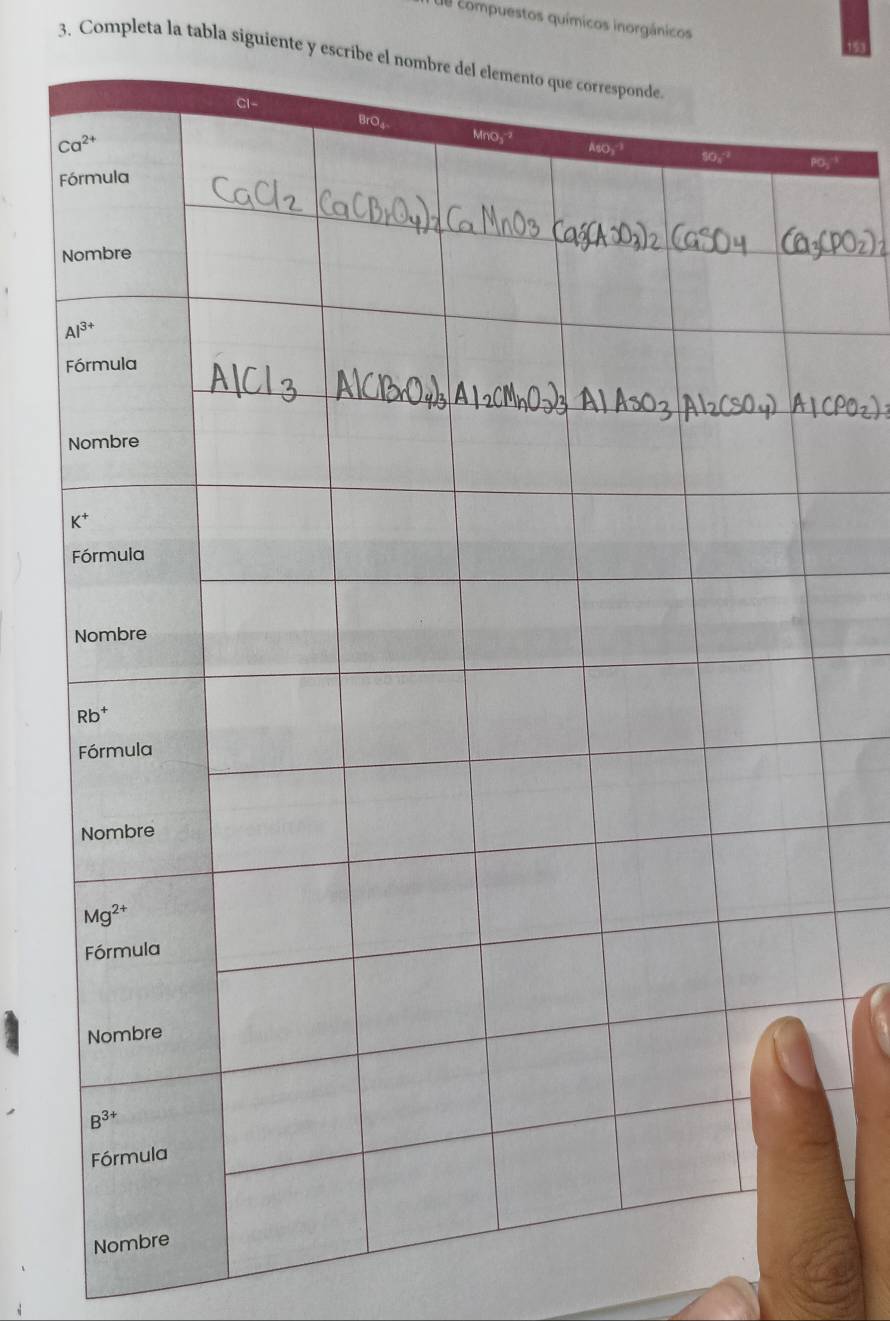 de compuestos químicos inorgánicos
153
3. Completa la tabla siguiente y escribe el nombre del elemento que corresponde.
Cl- BrO₄₋ MnO₃⁻² AsO₃⁻³ SO₄⁻² PO₂⁻³
Ca²⁺
Fórmula CaCl2 Ca(BrO4)2 CaMnO3 Ca3(AsO3)2 CaSO4 Ca3(PO2)2
Nombre
Al³⁺
Fórmula AlCl3 Al(BrO4)3 Al2(MnO3)3 AlAsO3 Al2(SO4) Al(PO2)3
Nombre
K⁺
Fórmula
Nombre
Rb⁺
Fórmula
Nombre
Mg²⁺
Fórmula
Nombre
B³⁺
Fórmula
Nombre